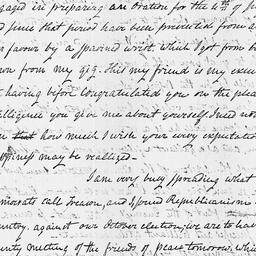 gaged in preparing an Oration for the 4th of J
nd since that period have been prevented from a
r favour by a sprained wrist, which I got from b
wn from my gig. This my friend is my excu
t having before congratulated you on the plea
elligence you give me about yourself. I need no
n that how much I wish your every expectatio
ppiness may be realized—
I am very busy spreading what
mocrats call Treason, and I spread Republicanism
untry, against our October election; we are to hav
unty meeting of the friends of peace tomorrow, whi